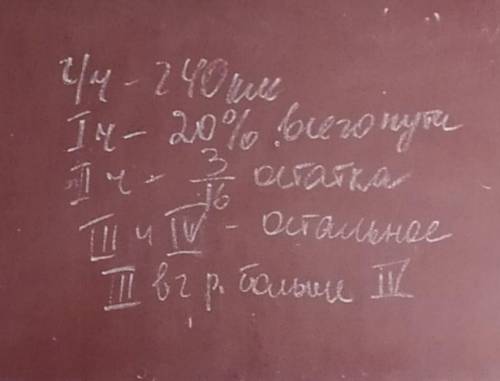 ч/ч - 240 км
I ч - 20% всего пути
II ч - 3/16 остатка
III ч IV - остальное
II в 2 р. больше IV